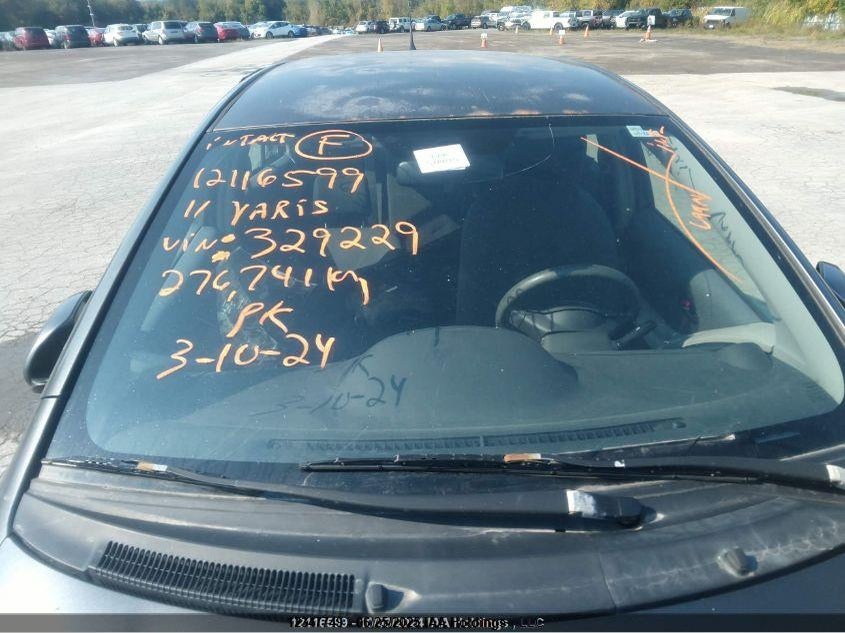 INTACT F
12116599
11 YARiS
ViN: 329229
276,741 Km
PK
3-10-24
3-10-24
12116599 - 10/23/2024 IAA Holdings, LLC